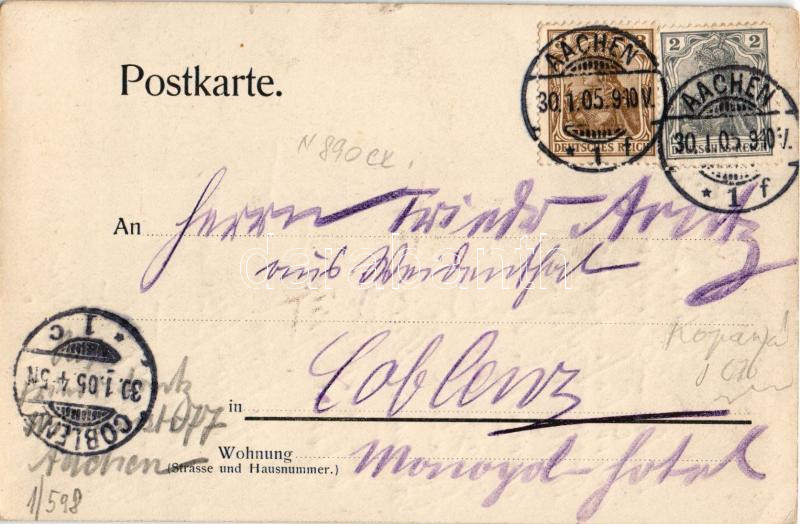 Postkarte.
3 2
DEUTSCHES REICH DEUTSCHES REICH
AACHEN
30.1.05.9-10V.
* 1 f
AACHEN
30.1.05.9-10V.
* 1 f
N 890 cx.
An Herrn Friedr. Arntz
aus Weidenthal
darabanth
COBLENZ
30.1.05.4-5N
* 1 c
in Coblenz
Aachen
Wohnung Monopol-Hotel
(Strasse und Hausnummer.)
1/598